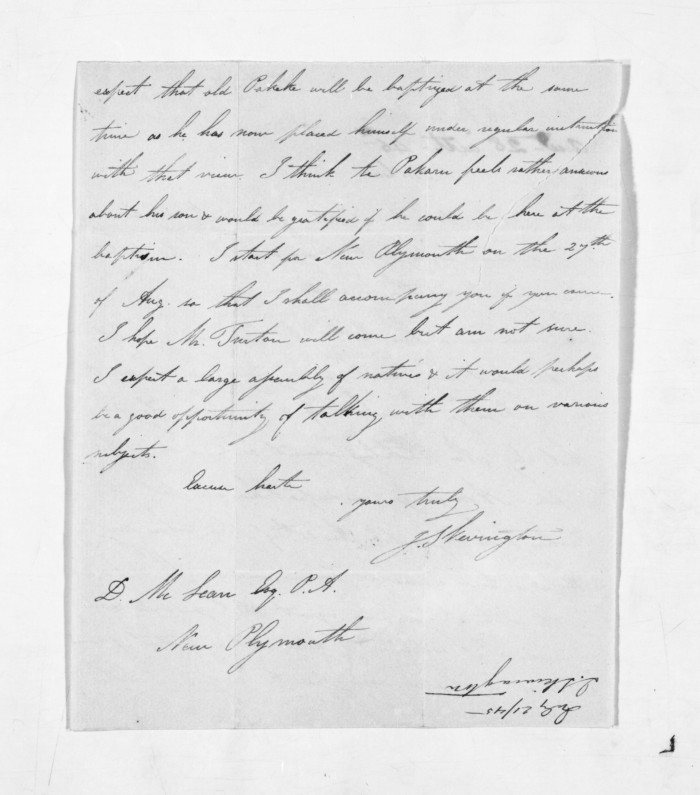 expect that old Pakeke will be baptized at the same
time as he has now placed himself under regular instruction
with that view. I think te Pakaru feels rather anxious
about his son & would be gratified if he could be here at the
baptism. I start for New Plymouth on the 27th
of Aug. so that I shall accompany you if you come.
I hope Mr. Turton will come but am not sure.
I expect a large assembly of natives & it would perhaps
be a good opportunity of talking with them on various
subjects.
Excuse haste
yours truly
J. Skevington
D. McLean Esq. P.A.
New Plymouth
J. Skevington
July 21/45